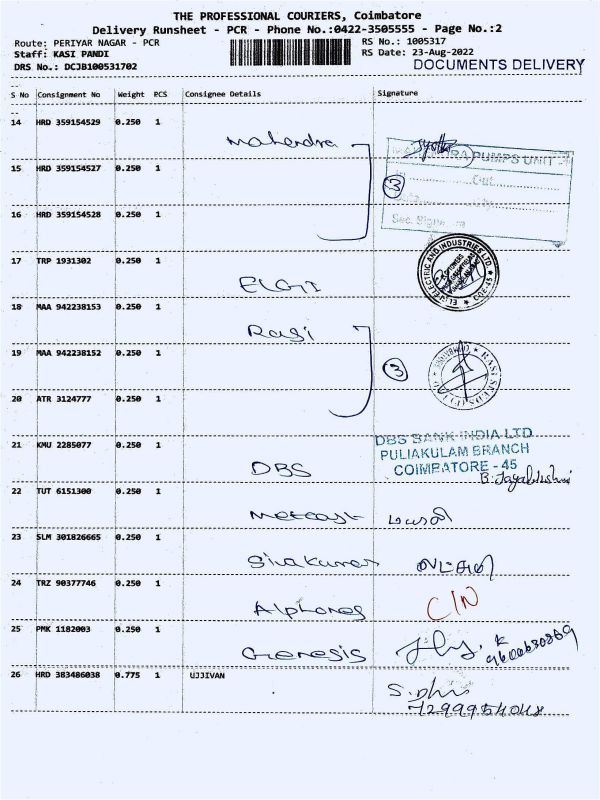 THE PROFESSIONAL COURIERS, Coimbatore
Delivery Runsheet - PCR - Phone No.:0422-3505555 - Page No.:2
Route: PERIYAR NAGAR - PCR
RS No.: 1005317
Staff: KASI PANDI
RS Date: 23-Aug-2022
DRS No.: DCJB100531702
DOCUMENTS DELIVERY
S No Consignment No Weight PCS Consignee Details Signature
14 HRD 359154529 0.250 1
Mahendra
PUMPS UNIT
15 HRD 359154527 0.250 1
3
Out
16 HRD 359154528 0.250 1
17 TRP 1931302 0.250 1
ELGI
ELECTRIC AND INDUSTRIES LTD
COE-45
18 MAA 942238153 0.250 1
Rasi
19 MAA 942238152 0.250 1
3
RASI SEEDS
20 ATR 3124777 0.250 1
21 KMU 2285077 0.250 1
DBS
DBS BANK INDIA LTD
PULIAKULAM BRANCH
COIMBATORE - 45
B. Jayalakshmi
22 TUT 6151300 0.250 1
23 SLM 301826665 0.250 1
Sivakumar
24 TRZ 90377746 0.250 1
Alphones
C/N
25 PMK 1182003 0.250 1
Genesis
26 HRD 383486038 0.775 1 UJJIVAN